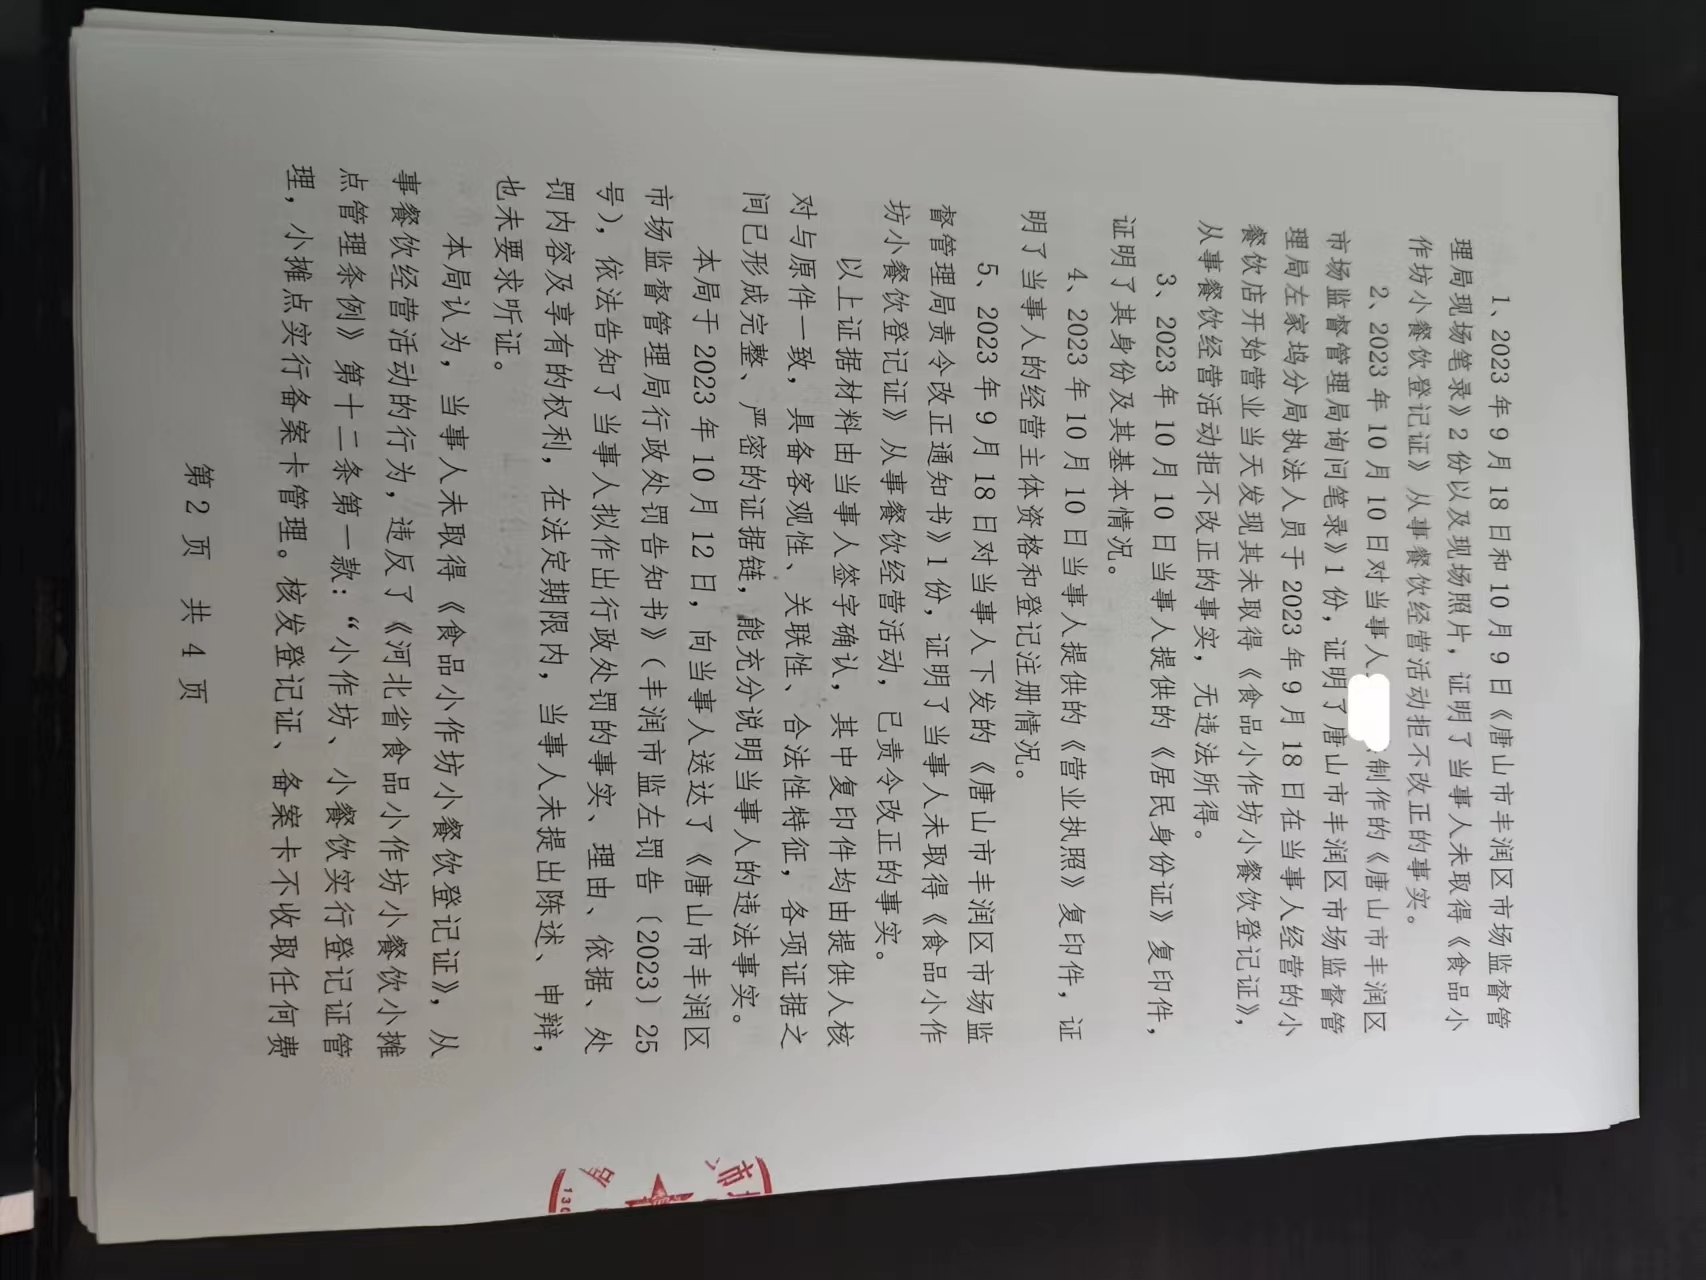 1、2023 年 9 月 18 日和 10 月 9 日《唐山市丰润区市场监督管
理局现场笔录》2 份以及现场照片，证明了当事人未取得《食品小
作坊小餐饮登记证》从事餐饮经营活动拒不改正的事实。
2、2023 年 10 月 10 日对当事人 制作的《唐山市丰润区
市场监督管理局询问笔录》1 份，证明了唐山市丰润区市场监督管
理局左家坞分局执法人员于 2023 年 9 月 18 日在当事人经营的小
餐饮店开始营业当天发现其未取得《食品小作坊小餐饮登记证》，
从事餐饮经营活动拒不改正的事实，无违法所得。
3、2023 年 10 月 10 日当事人提供的《居民身份证》复印件，
证明了其身份及其基本情况。
4、2023 年 10 月 10 日当事人提供的《营业执照》复印件，证
明了当事人的经营主体资格和登记注册情况。
5、2023 年 9 月 18 日对当事人下发的《唐山市丰润区市场监
督管理局责令改正通知书》1 份，证明了当事人未取得《食品小作
坊小餐饮登记证》从事餐饮经营活动，已责令改正的事实。
以上证据材料由当事人签字确认，其中复印件均由提供人核
对与原件一致，具备客观性、关联性、合法性特征，各项证据之
间已形成完整、严密的证据链，能充分说明当事人的违法事实。
本局于 2023 年 10 月 12 日，向当事人送达了《唐山市丰润区
市场监督管理局行政处罚告知书》（丰润市监左罚告〔2023〕25
号），依法告知了当事人拟作出行政处罚的事实、理由、依据、处
罚内容及享有的权利，在法定期限内，当事人未提出陈述、申辩，
也未要求听证。
本局认为，当事人未取得《食品小作坊小餐饮登记证》，从
事餐饮经营活动的行为，违反了《河北省食品小作坊小餐饮小摊
点管理条例》第十二条第一款：“小作坊、小餐饮实行登记证管
理，小摊点实行备案卡管理。核发登记证、备案卡不收取任何费
第 2 页 共 4 页
市